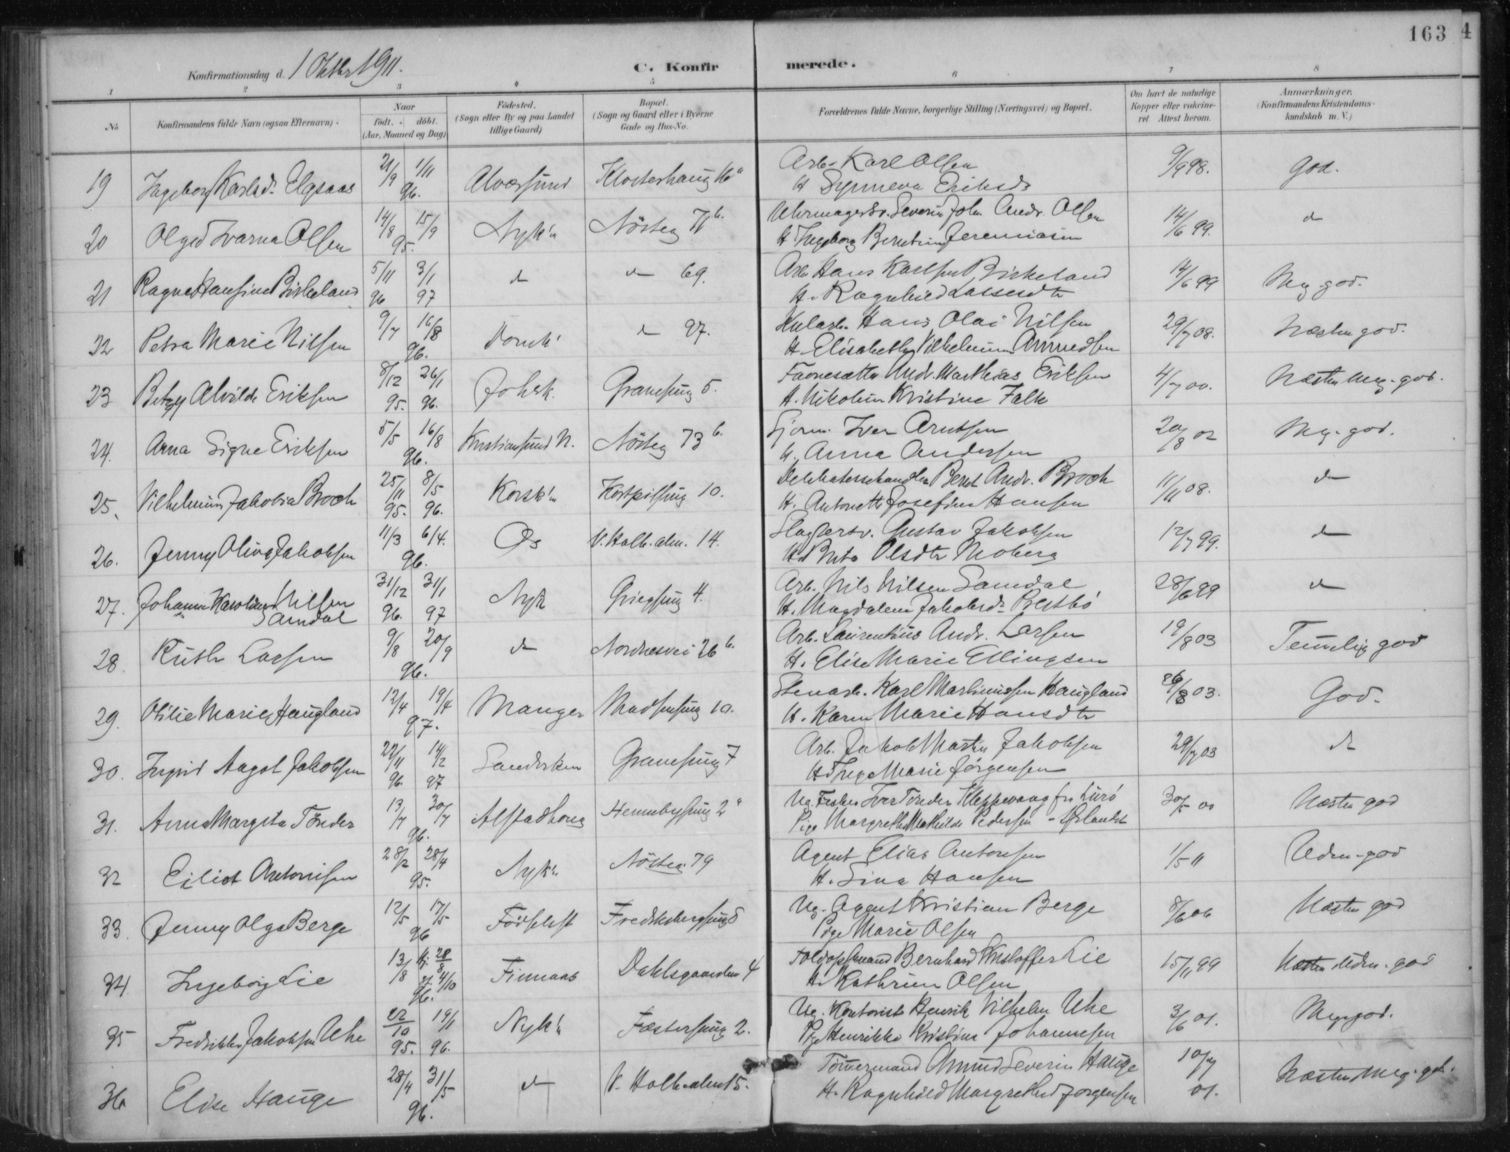 163 4
Konfirmationsdag d. 1 Oktbr 1911.
C. Konfirmerede.
1 2 3 4 5 6 7 8
No
Konfirmandens fulde Navn (ogsaa Efternavn).
Naar
født. døbt.
(Aar, Maaned og Dag)
Fødested.
(Sogn eller By og paa Landet tillige Gaard)
Bopæl.
(Sogn og Gaard eller i Byerne Gade og Hus-No.
Forældrenes fulde Navne, borgerlige Stilling (Næringsvei) og Bopæl.
Om havt de naturlige Kopper eller vakcineret. Attest herom.
Anmærkninger.
(Konfirmandens Kristendomskundskab m. V.)
19 Ingeborg Karlsdr. Elgsaas 21/9 1/11 96. Alversund Klosterhaug 16a Arb. Karl Olsen 9/9 98. god.
H. Synneva Eriksdr
20 Olged Ivarna Olsen 14/8 15/9 95. Nyk. Nøsteg 71b. Uhrmagersv. Severin Joh. Andr. Olsen 14/6 99. d
H. Ingeborg Berntine Jeremiasen
21 Ragna Hansine Birkeland 5/11 96 3/1 97 d d 69. Arb. Hans Karlsen Birkeland 14/6 99 Mg. god.
H. Ragnhild Larsdtr
22 Petra Marie Nilsen 9/7 16/8 96. Domk. d 97. Kularb. Hans Olai Nilsen 29/7 08. Næsten god.
H. Elisabeth Vilhelmine Amundsen
23 Betzy Alvilde Eriksen 8/12 95. 26/1 96. Johsk. Granesmg 5. Andr. Matthias Eriksen 4/7 00. Næsten mg. god.
H. Nikoline Kristine Falk
24. Arna Signe Eriksen 5/5 16/8 96. Kristiansund N. Nøsteg 73b. Sjøm. Iver Arntsen 20/8 02 Mg. god.
H. Anna Andersen
25. Vilhelmine Jakobia Broch 25/11 95. 8/5 96. Korsk. 10. Delikatessehandler Bernt Andr. Broch 11/11 08. d
H. Antonette Josefine Hansen
26. Jenny Oliva Jakobsen 11/3 6/4. 96. Os V. Holb. alm. 14. Slagtersv. Gustav Jakobsen 12/7 99. d
H. Brita Olsdtr Moberg
27. Johanna Karoline Nilsen Samdal 31/12 96 31/1 97 Nyk Griegsmg 4. Arb. Nils Nilsen Samdal 28/6 99 d
H. Magdalena Jakobsdr Prestbø
28. Ruth Larsen 9/8 20/9 96. d Nordnesvei 26b. Arb. Laurentius Andr. Larsen 19/8 03 Temmelig god
H. Elise Marie Ellingsen
29. Otilie Marie Haugland 12/4 19/4 97. Manger Madsensmg 10. Stenarb. Karl Martinussen Haugland 26/8 03. God.
H. Karen Marie Hansdtr
30. Ingrid Aagot Jakobsen 22/11 96 14/2 97 Sandviken Granesmg 7 Arb. Jakob Martin Jakobsen 29/7 03 d
H. Inga Marie Jørgensen
31. Anna Margreta Tønder 13/7 30/7 96. Alstadhoug Hennebysmg 2a Ug. Fisker Iver Tønder Kleppevaag fra Lurø 30/5 00 Næsten god
Pige Margrethe Mathilde Pedersen
32 Eiliot Antonisen 28/2 28/4 95. Nyk. Nøsteg 79 Agent Elias Antonsen 1/5 11 Udm. god
H. Lina Hansen
33. Jenny Olga Berge 12/5 17/5 96 Fødselsst Fredriksbergsmg 8 Ug. Agent Kristian Berge 8/6 06 Næsten god
Pige Marie Olsen
34. Ingeborg Lie 13/8 4/10 96. Finnaas Dahlsgaarden 4 Bernhard Kristoffer Lie 15/11 99 Udm. god
H. Kathrine Olsen
35 Fredrikke Jakobsen Uhe 22/10 95. 19/1 96. Nyk. Fostersmug 2. Ug. Kontorist Henrik Vilhelm Uhe 3/6 01. Mg. god.
Pige Henrikke Kristine Johannesen
36 Elise Hauge 28/4 31/5 96. d V. Holb. alm 15. Tømmermand Amund Severin Hauge 10/7 01. Næsten mg. god.
H. Ragnhild Margrethe Jørgensen